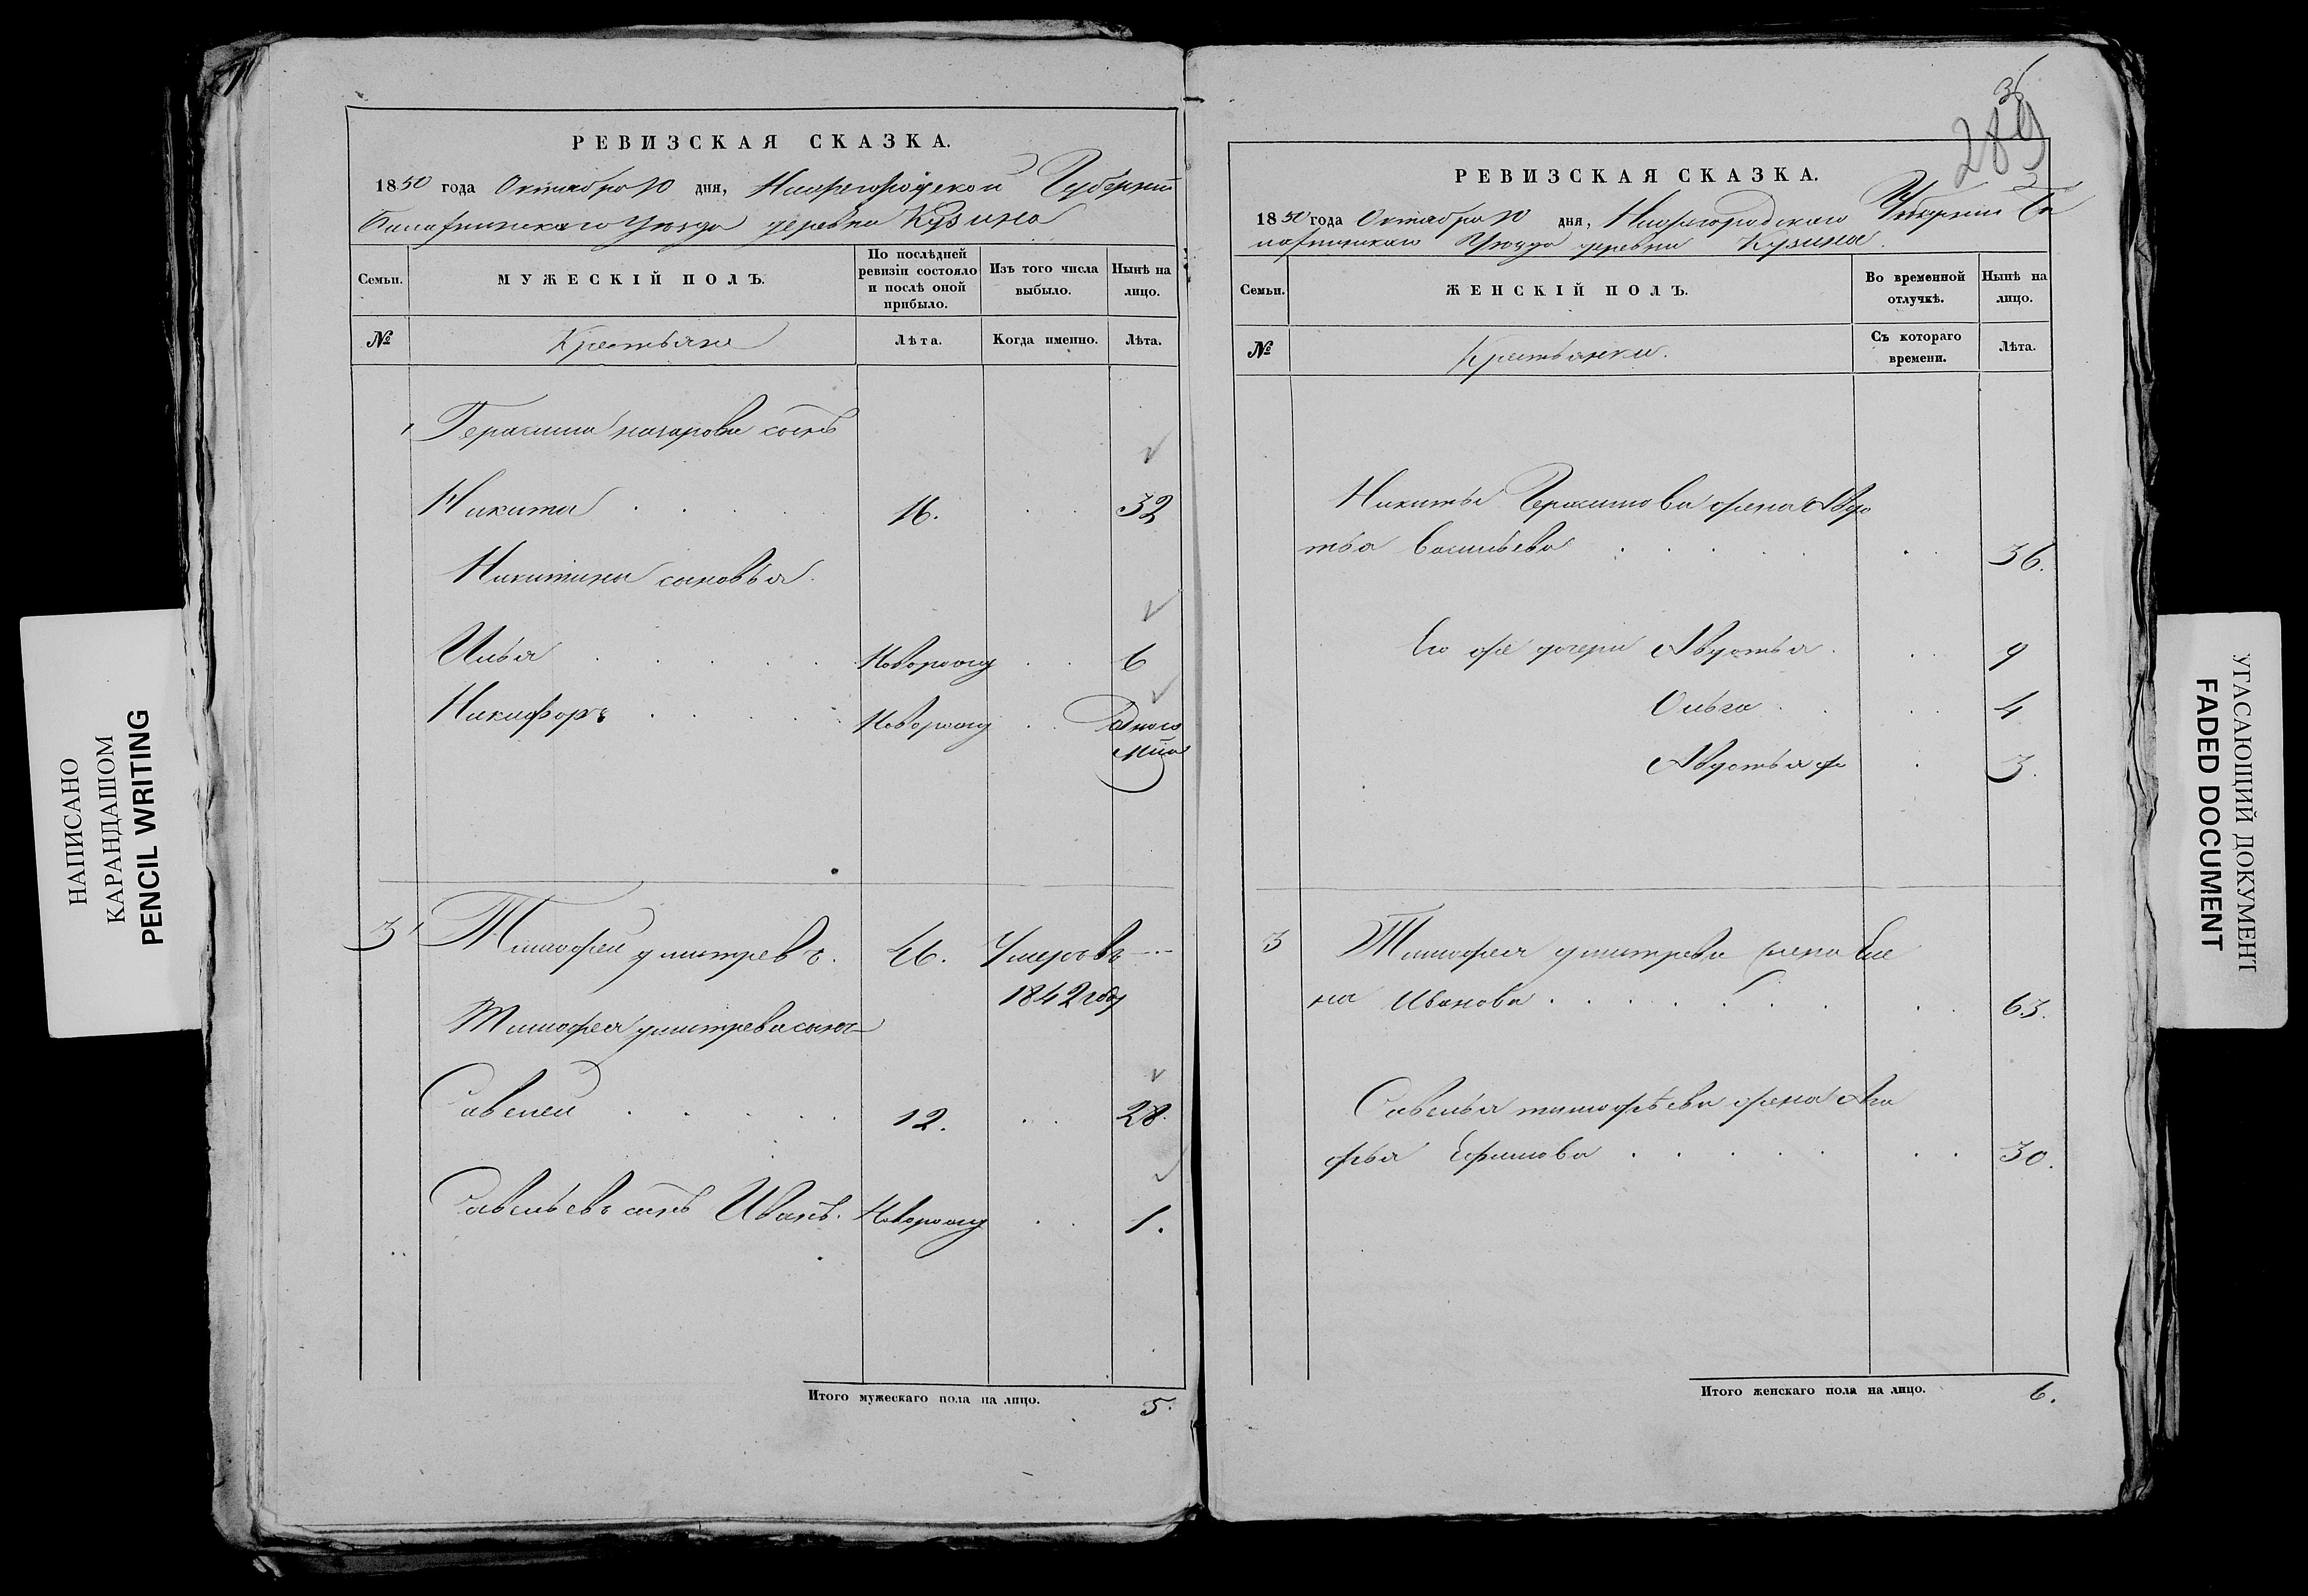 РЕВИЗСКАЯ СКАЗКА.
1850 года Октября 10 дня, Нижегородской Губернии
Балахнинскаго Уезда деревни Кузина
Семьи.
МУЖЕСКІЙ ПОЛЪ.
По послѣдней ревизіи состояло и послѣ оной прибыло.
Изъ того числа выбыло.
Нынѣ на лицо.
№
Крестьяне
Лѣта.
Когда именно.
Лѣта.
Герасима назарова сынъ
Никита 16. 32
Никитины сыновья
Илья Новорожд 6
Никифоръ Новорожд Одного
мца
3 Тимофей дмитревъ. 46. Умеръ въ
1842 году
Тимофея дмитрева сынъ
Савелей 12. 28.
Савельевъ сынъ Иванъ. Новорожд 1.
Итого мужескаго пола на лицо. 5.
289
РЕВИЗСКАЯ СКАЗКА.
1850 года Октября 10 дня, Нижегородскаго Губернии Ба
лахнинскаго Уезда деревни Кузина.
Семьи.
ЖЕНСКІЙ ПОЛЪ.
Во временной отлучкѣ.
Нынѣ на лицо.
№
Крестьянки.
Съ котораго времени.
Лѣта.
Никиты Герасимова жена Авдо
тья Васильева 36.
Его же дочери Авдотья 9
Ольга 4
Авдотья ж 3.
3 Тимофея дмитрева жена Еле
на Иванова 63.
Савелья тимофѣева жена Ага
фья Ефимова 30.
Итого женскаго пола на лицо. 6.
НАПИСАНО
КАРАНДАШОМ
PENCIL WRITING
УГАСАЮЩИЙ ДОКУМЕНТ
FADED DOCUMENT